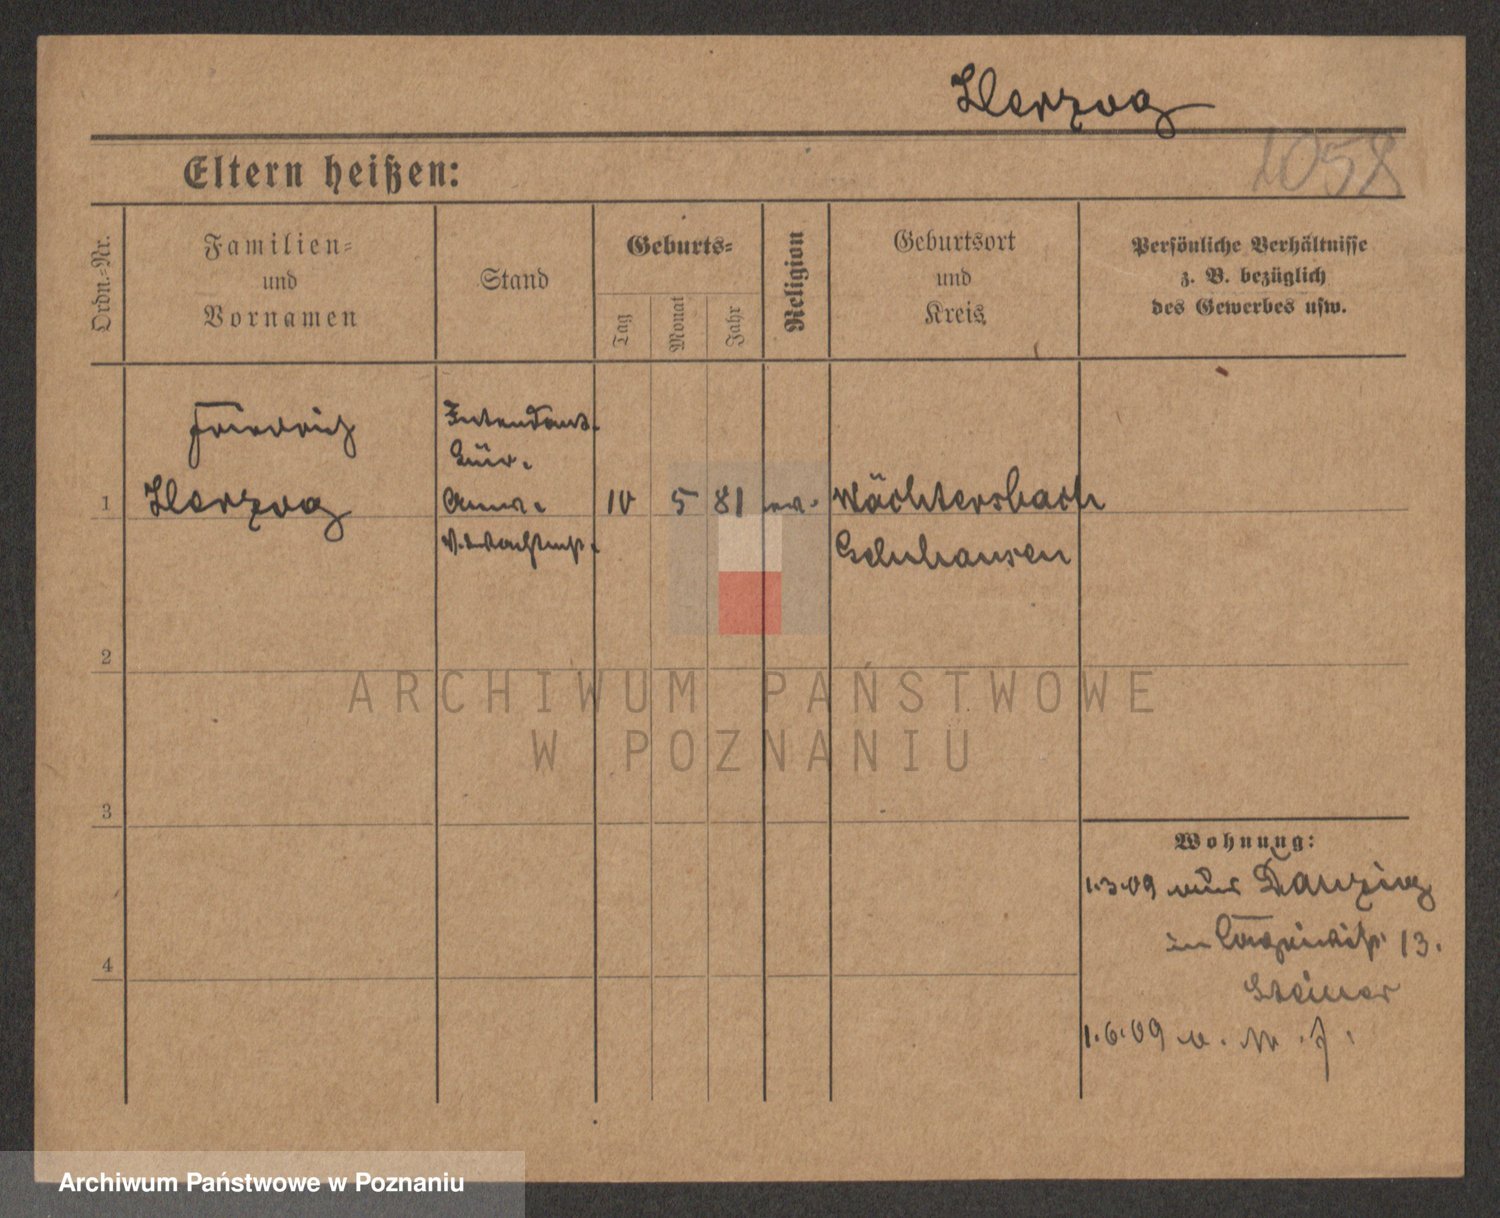 Herzog
1058
Eltern heißen:
Ordn.=Nr.
Familien=
und
Vornamen
Stand
Geburts=
Tag
Monat
Jahr
Religion
Geburtsort
und
Kreis
Persönliche Verhältnisse
z. B. bezüglich
des Gewerbes usw.
Friedrich
Herzog
1
10
5
81
ev.
Wächtersbach
Gelnhausen
2
3
4
Wohnung:
1.3.09 Danzig
13.
1.6.09
ARCHIWUM PAŃSTWOWE
W POZNANIU
Archiwum Państwowe w Poznaniu